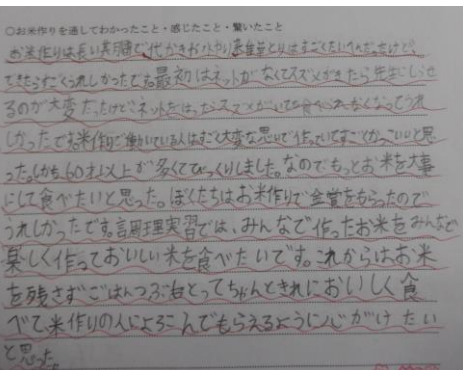 ○お米作りを通してわかったこと・感じたこと・驚いたこと
お米作りは長い期間で代かきわやり草とりはすごくたいへんだったけど、
できたらすごくうれしかったです最初はネットがなくてスズメがきたら先生にしらせ
るのが大変だったけどネットをはったらスズメがいても食べられなくなってうれ
しかったですお米作りで働いている人はすごく大変な思いで作っていてすごくかっこいいと思
った。しかも60才以上が多くてびっくりしました。なのでもっとお米を大事
にして食べたいと思った。ぼくたちはお米作りで金賞をもらったので
うれしかったです。調理実習では、みんなで作ったお米をみんなで
楽しく作っておいしい米を食べたいです。これからはお米
を残さずごはんつぶ とってちゃんときれにおいしく食
べて米作りの人によろこんでもらえるように心がけたい
と思った。